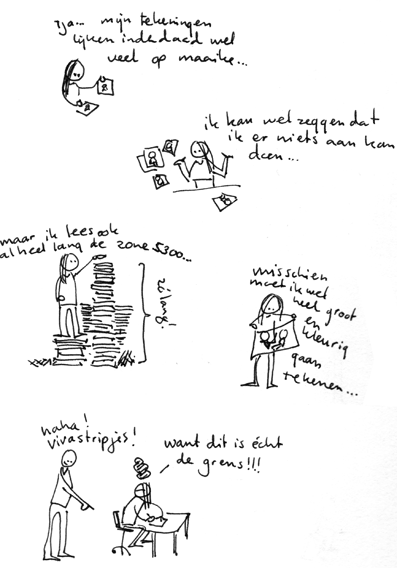 tja... mijn tekeningen
lijken inderdaad wel
veel op maaike...
ik kan wel zeggen dat
ik er niets aan kan
doen...
maar ik lees ook
al heel lang de zone 5300...
zó lang!
misschien
moet ik wel
heel groot
en
kleurig
gaan
tekenen...
haha!
vivastripjes!
want dit is écht
de grens!!!